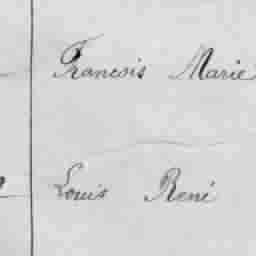 Francois Marie
Louis René